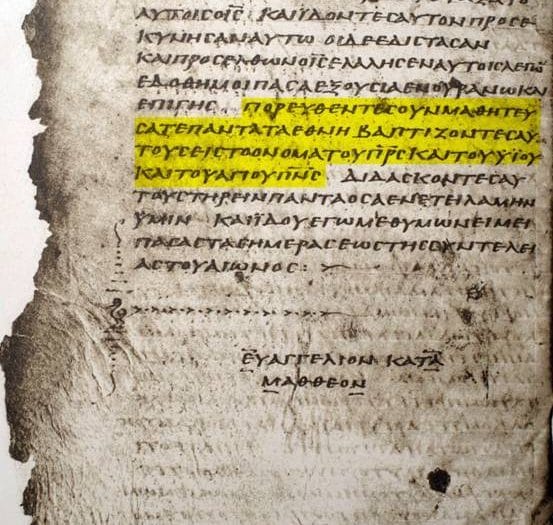 ΑΥΤΟΙΣΟΙΣ ΚΑΙΪΔΟΝΤΕΣΑΥΤΟΝΠΡΟΣΕ
ΚΥΝΗΣΑΝΑΥΤΩ ΟΙΔΕΕΔΙΣΤΑΣΑΝ
ΚΑΙΠΡΟΣΕΛΘΩΝΟΙΣΕΛΑΛΗΣΕΝΑΥΤΟΙΣΛΕΓΩ
ΕΔΟΘΗΜΟΙΠΑΣΑΕΞΟΥΣΙΑΕΝΟΥΡΑΝΩΚΑΙ
ΕΠΙΓΗΣ ΠΟΡΕΥΘΕΝΤΕΣΟΥΝΜΑΘΗΤΕΥ
ΣΑΤΕΠΑΝΤΑΤΑΕΘΝΗ ΒΑΠΤΙΖΟΝΤΕΣΑΥ
ΤΟΥΣΕΙΣΤΟΟΝΟΜΑΤΟΥΠΡΣΚΑΙΤΟΥΥΙΟΥ
ΚΑΙΤΟΥΑΓΙΟΥΠΝΣ ΔΙΔΑΣΚΟΝΤΕΣΑΥ
ΤΟΥΣΤΗΡΕΙΝΠΑΝΤΑΟΣΑΕΝΕΤΕΙΛΑΜΗΝ
ΥΜΙΝ ΚΑΙΪΔΟΥΕΓΩΜΕΘΥΜΩΝΕΙΜΕΙ
ΠΑΣΑΣΤΑΣΗΜΕΡΑΣΕΩΣΤΗΣΣΥΝΤΕΛΕΙ
ΑΣΤΟΥΑΙΩΝΟΣ:
ΕΥΑΓΓΕΛΙΟΝ ΚΑΤΑ
ΜΑΘΘΕΟΝ